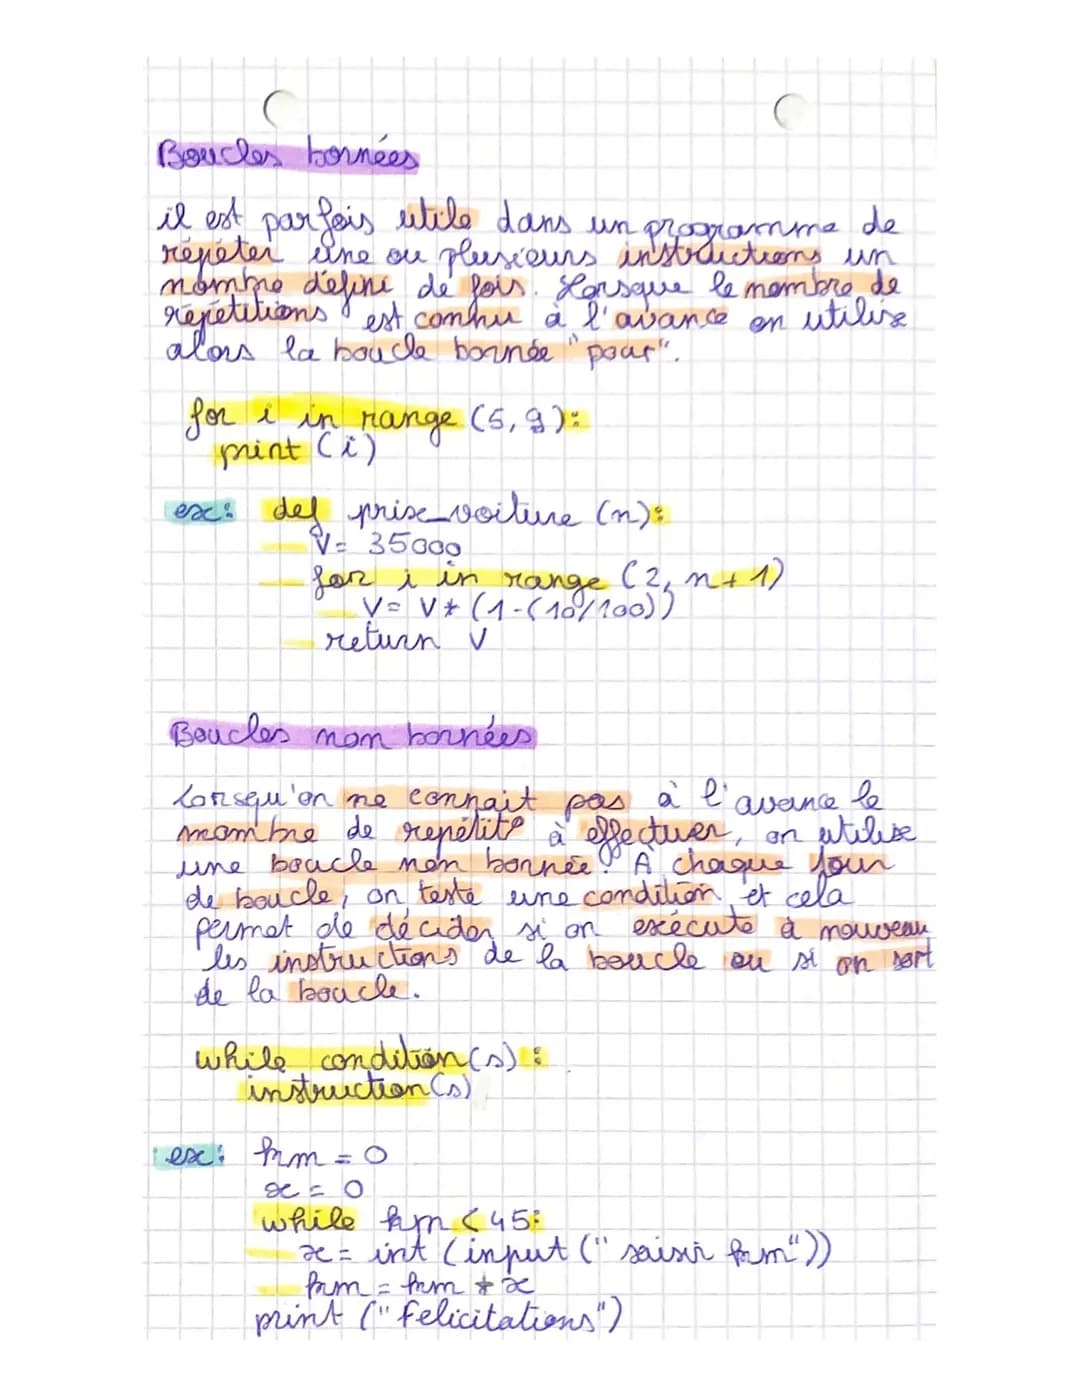 Boucles bornées
il est parfois utile dans un programme de
répéter une ou plusieurs instructions un
nombre défini de fois. Lorsque le nombre de
répétitions est connu à l'avance on utilise
alors la boucle bornée "pour".
for i in range (5, 9):
print (i)
ex: def prix_voiture (n):
V= 35000
for i in range (2, n+1)
V= V* (1-(10/100))
return V
Boucles non bornées
Lorsqu'on ne connait pas à l'avance le
nombre de répétit° à effectuer, on utilise
une boucle non bornée. A chaque tour
de boucle, on teste une condition et cela
permet de décider si on exécute à nouveau
les instructions de la boucle ou si on sort
de la boucle.
while condition(s) :
instruction(s)
ex: km = 0
x = 0
while km < 45:
x = int (input (" saisir km"))
km = km + x
print (" Felicitations")